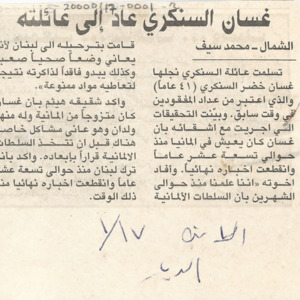 20000/17-0001-2
غسان السنكري عاد إلى عائلته
الشمال ـ محمد سيف
تسلمت عائلة السنكري نجلها
غسان خضر السنكري (٤١ عاماً)
والذي اعتبر من عداد المفقودين
في وقت سابق. وبينت التحقيقات
التي اجريت مع اشقائه بأن
غسان كان يعيش في المانيا منذ
حوالى تسعة عشر عاماً
وانقطعت اخباره نهائياً. وافاد
اخوته «اننا علمنا منذ حوالى
الشهرين بأن السلطات الألمانية
قامت بترحيله الى لبنان لأنه
يعاني وضعاً صحياً صعباً
وكذلك يبدو فاقداً لذاكرته نتيجة
لتعاطيه مواد ممنوعة».
واكد شقيقه هيثم بأن غسان
كان متزوجاً من المانية وله منها
ولدان وهو عانى مشاكل خاصة
هناك قبل ان تتخذ السلطات
الالمانية قراراً بإبعاده. واكد بأنه
ترك لبنان منذ حوالى تسعة عشر
عاماً وانقطعت اخباره نهائيا منذ
ذلك الوقت.
١/١٧
الديار